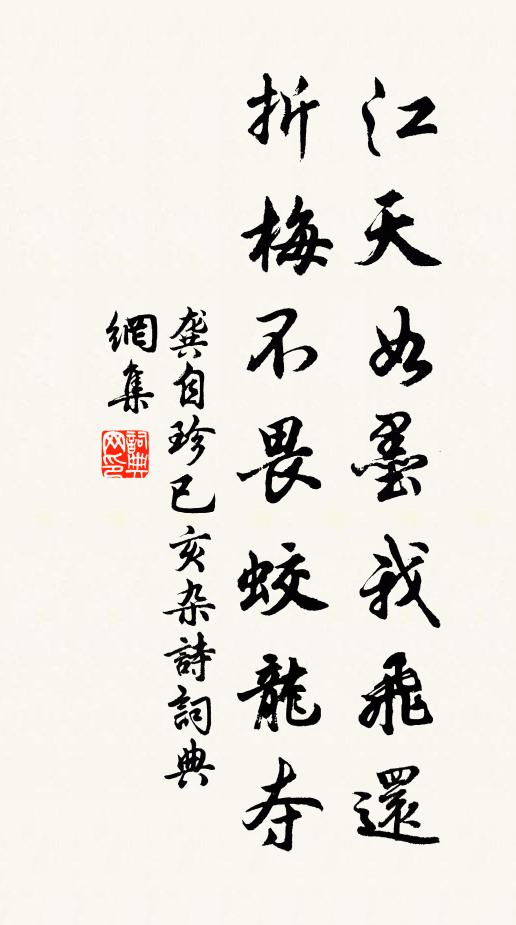 江天如墨我飛還
折梅不畏蛟龍夺
龔自珍己亥杂詩詞典
網集
詞典網印